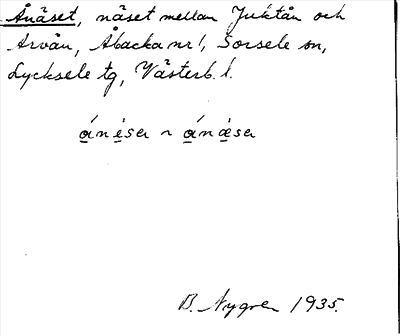 Ånäset, näset mellan Juktån och
Arvån, Åbacka nr 1, Sorsele sn,
Lycksele tg, Västerb. l.
ó̱ṅ e̱sa ~ ó̱n æ̱sa
B. Nygren 1935.